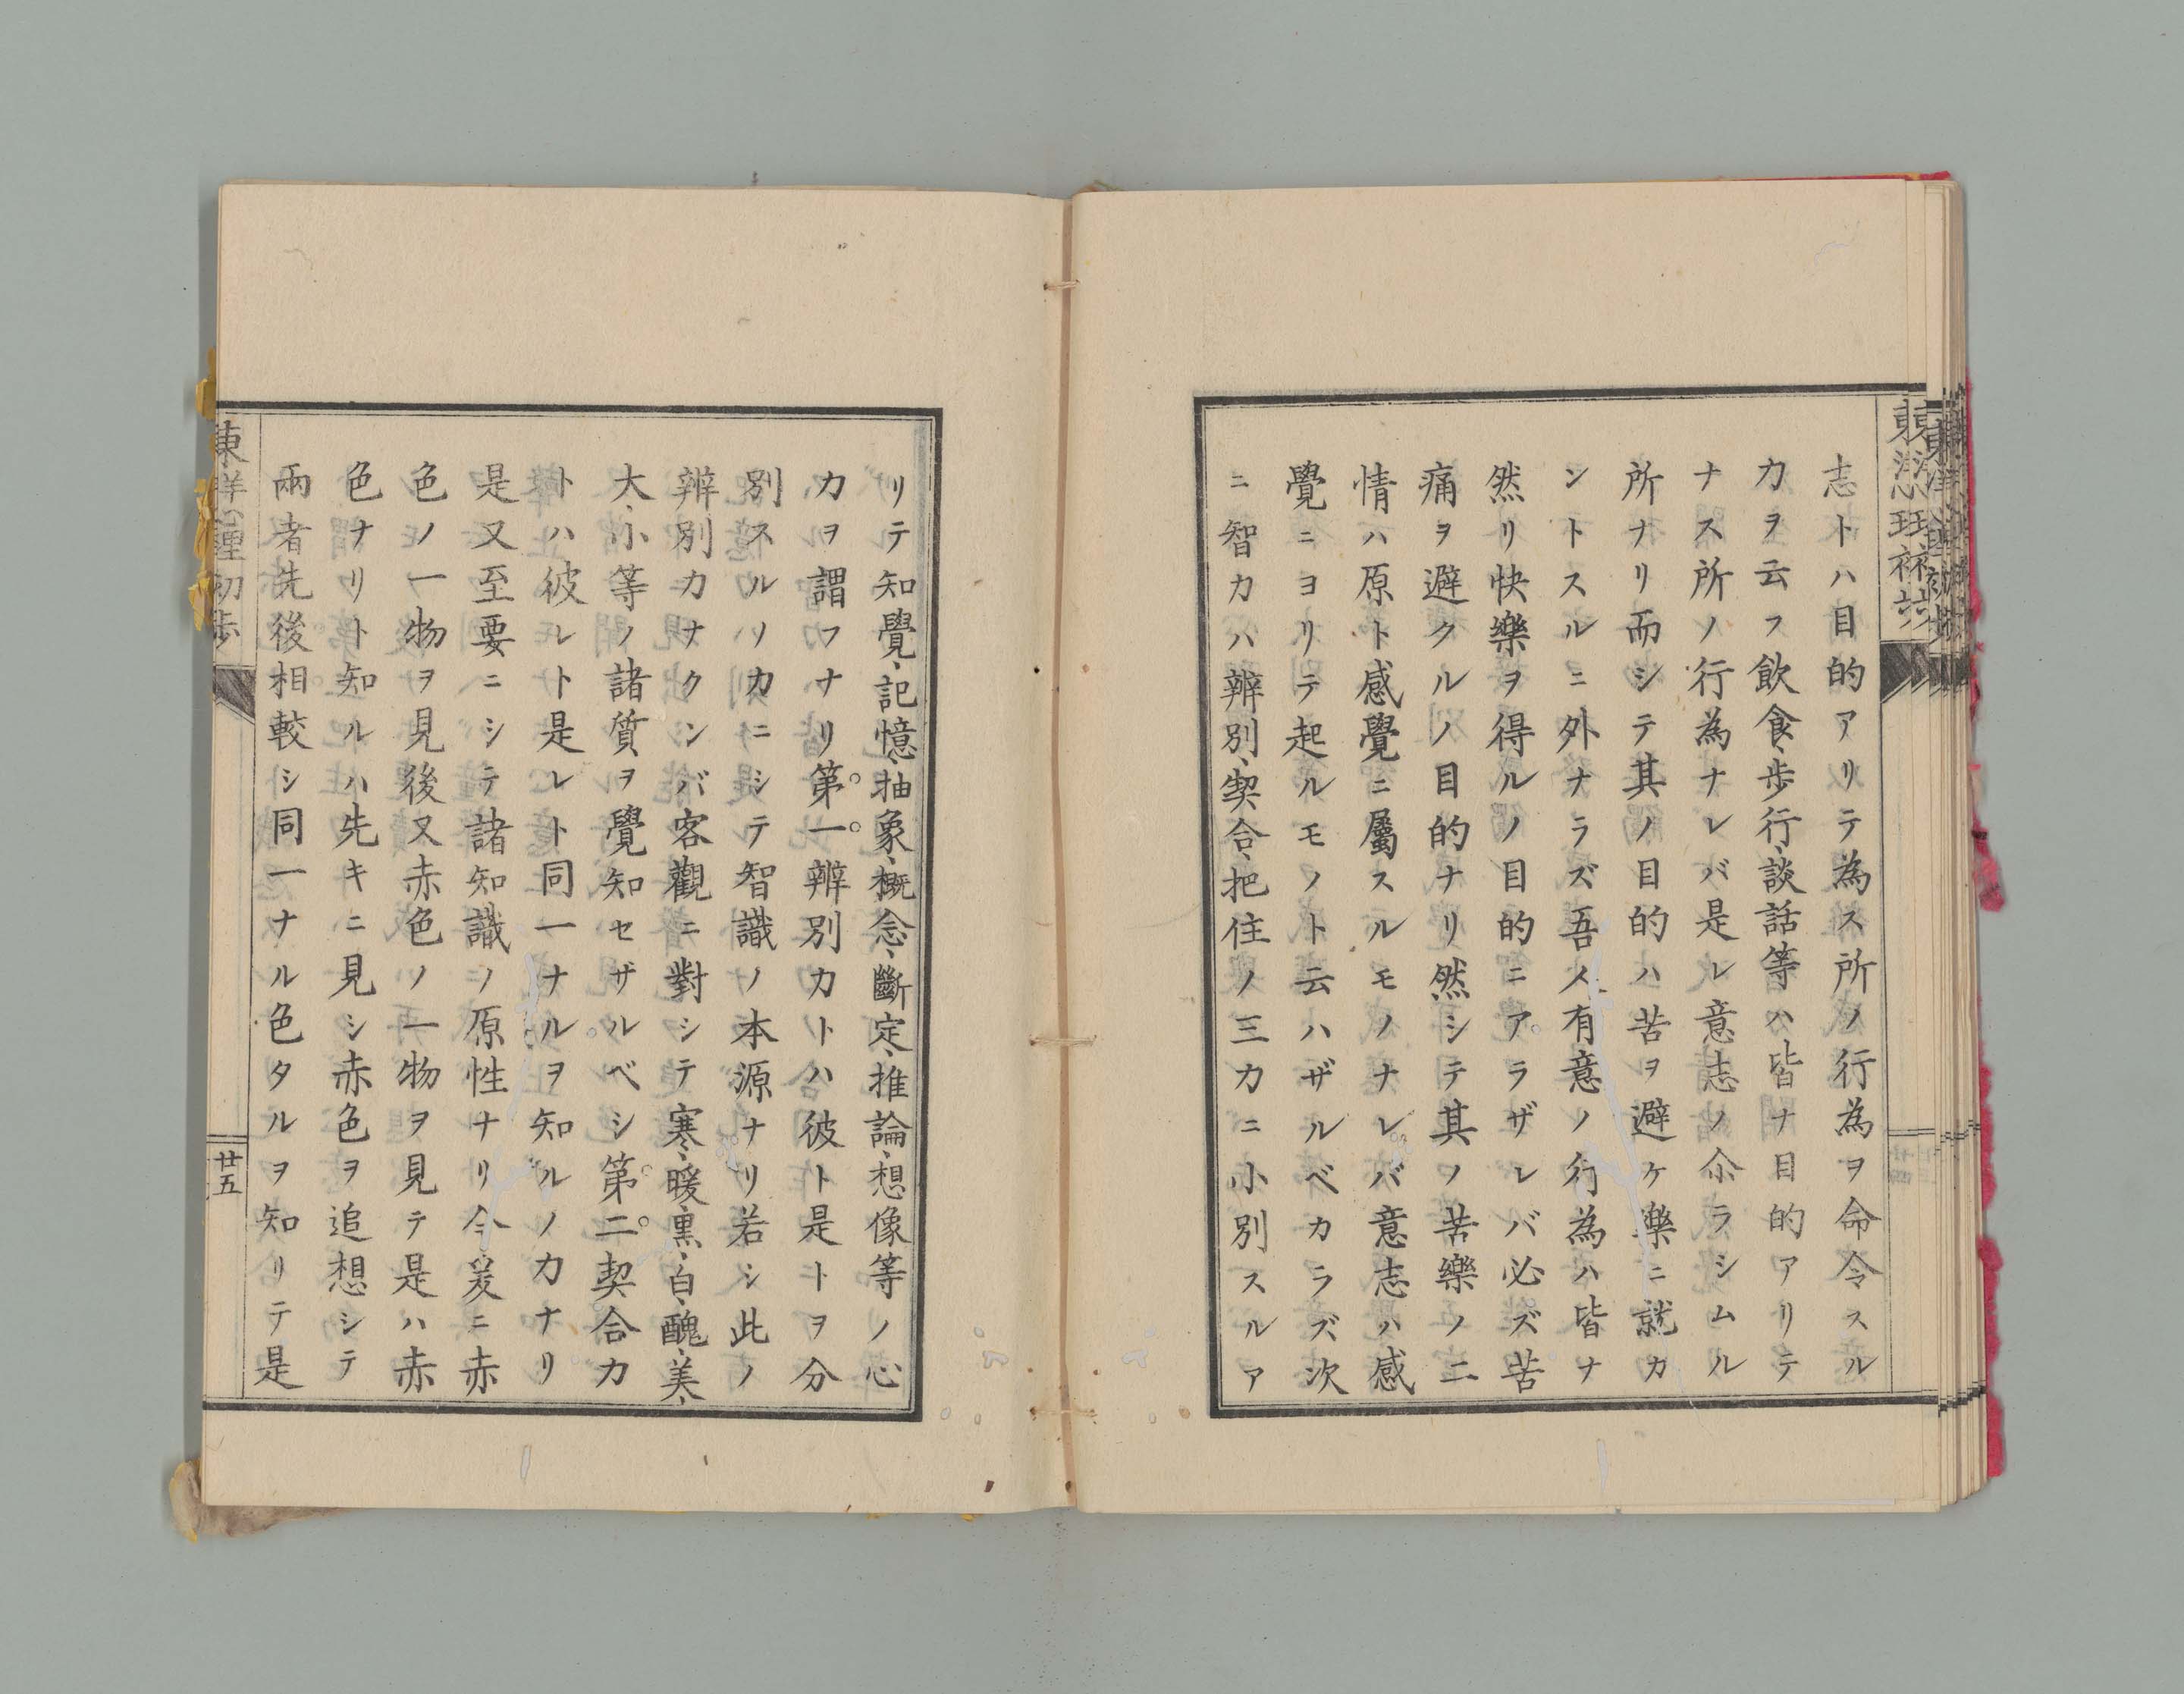 志トハ目的アリテ為ス所ノ行為ヲ命令スル
力ヲ云フ飲食、歩行、談話等ハ皆ナ目的アリテ
ナス所ノ行為ナレバ是レ意志ノ尒ラシムル
所ナリ而シテ其ノ目的ハ苦ヲ避ケ樂ニ就カ
ントスルニ外ナラズ吾人有意ノ行為ハ皆ナ
然リ快樂ヲ得ルノ目的ニアラザレバ必ズ苦
痛ヲ避クルノ目的ナリ然シテ其ノ苦樂ノ二
情ハ原ト感覺ニ屬スルモノナレバ意志ハ感
覺ニヨリテ起ルモノト云ハザルベカラズ次
ニ智力ハ辨別、契合、把住ノ三力ニ小別スルア
リテ知覺、記憶、抽象、概念、斷定、推論、想像等ノ心
力ヲ謂フナリ第一辨別力トハ彼ト是トヲ分
別スルノ力ニシテ智識ノ本源ナリ若シ此ノ
辨別力ナクンバ客觀ニ對シテ寒、暖、黒、白、醜、美、
大、小等ノ諸質ヲ覺知セザルベシ第二契合力
トハ彼レト是レト同一ナルヲ知ルノ力ナリ
是又至要ニシテ諸知識ノ原性ナリ今爰ニ赤
色ノ一物ヲ見後又赤色ノ一物ヲ見テ是ハ赤
色ナリト知ルハ先キニ見シ赤色ヲ追想シテ
兩者先後相較シ同一ナル色タルヲ知リテ是
東洋心理初歩
廿五